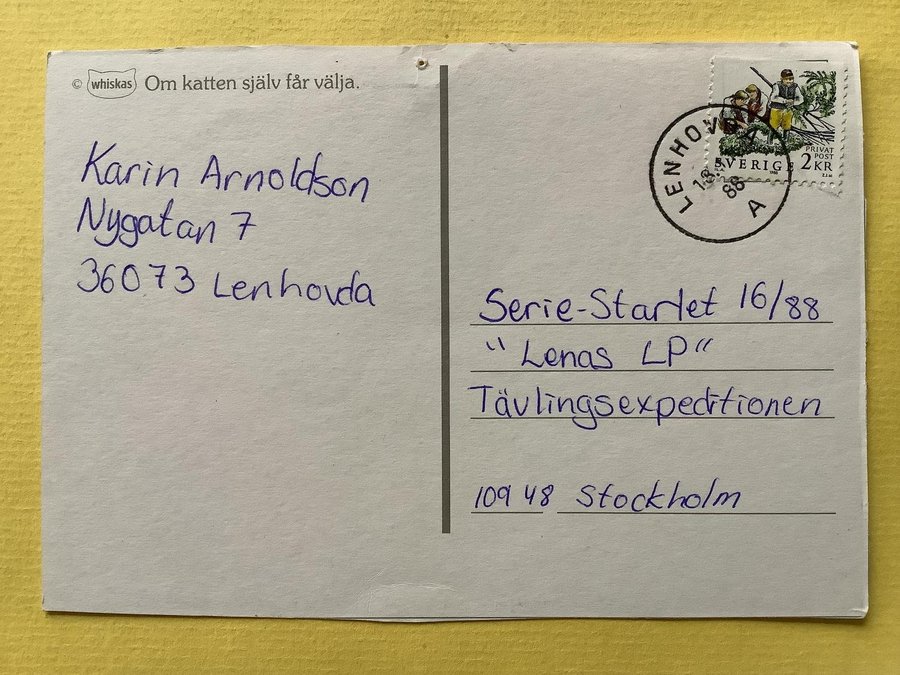 © whiskas Om katten själv får välja.
Karin Arnoldson
Nygatan 7
36073 Lenhovda
LENHOVDA
88
A
SVERIGE 2KR
PRIVAT
POST
Serie-Starlet 16/88
"Lenas LP"
Tävlingsexpeditionen
109 48 Stockholm